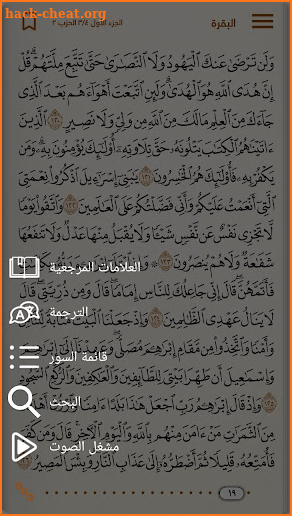 hack-cheat.org
البقرة
الجزء الأول ٣/٤ الحزب ٢
وَلَن تَرْضَىٰ عَنكَ ٱلْيَهُودُ وَلَا ٱلنَّصَٰرَىٰ حَتَّىٰ تَتَّبِعَ مِلَّتَهُمْ ۗ قُلْ
إِنَّ هُدَى ٱللَّهِ هُوَ ٱلْهُدَىٰ ۗ وَلَئِنِ ٱتَّبَعْتَ أَهْوَآءَهُم بَعْدَ ٱلَّذِى
جَآءَكَ مِنَ ٱلْعِلْمِ ۙ مَا لَكَ مِنَ ٱللَّهِ مِن وَلِىٍّ وَلَا نَصِيرٍ ١٢٠ ٱلَّذِينَ
ءَاتَيْنَٰهُمُ ٱلْكِتَٰبَ يَتْلُونَهُۥ حَقَّ تِلَاوَتِهِۦٓ أُو۟لَٰٓئِكَ يُؤْمِنُونَ بِهِۦ ۗ وَمَن
يَكْفُرْ بِهِۦ فَأُو۟لَٰٓئِكَ هُمُ ٱلْخَٰسِرُونَ ١٢١ يَٰبَنِىٓ إِسْرَٰٓءِيلَ ٱذْكُرُوا۟ نِعْمَتِىَ
ٱلَّتِىٓ أَنْعَمْتُ عَلَيْكُمْ وَأَنِّى فَضَّلْتُكُمْ عَلَى ٱلْعَٰلَمِينَ ١٢٢ وَٱتَّقُوا۟ يَوْمًا
لَّا تَجْزِى نَفْسٌ عَن نَّفْسٍ شَيْـًٔا وَلَا يُقْبَلُ مِنْهَا عَدْلٌ وَلَا تَنفَعُهَا
شَفَٰعَةٌ وَلَا هُمْ يُنصَرُونَ ١٢٣ ۞ وَإِذِ ٱبْتَلَىٰٓ إِبْرَٰهِـۧمَ رَبُّهُۥ بِكَلِمَٰتٍ
العلامات المرجعية
فَأَتَمَّهُنَّ ۖ قَالَ إِنِّى جَاعِلُكَ لِلنَّاسِ إِمَامًا ۖ قَالَ وَمِن ذُرِّيَّتِى ۖ قَالَ
لَا يَنَالُ عَهْدِى ٱلظَّٰلِمِينَ ١٢٤ وَإِذْ جَعَلْنَا ٱلْبَيْتَ مَثَابَةً لِّلنَّاسِ
الترجمة
وَأَمْنًا وَٱتَّخِذُوا۟ مِن مَّقَامِ إِبْرَٰهِـۧمَ مُصَلًّى ۖ وَعَهِدْنَآ إِلَىٰٓ إِبْرَٰهِـۧمَ
قائمة السور
وَإِسْمَٰعِيلَ أَن طَهِّرَا بَيْتِىَ لِلطَّآئِفِينَ وَٱلْعَٰكِفِينَ وَٱلرُّكَّعِ ٱلسُّجُودِ
١٢٥ وَإِذْ قَالَ إِبْرَٰهِـۧمُ رَبِّ ٱجْعَلْ هَٰذَا بَلَدًا ءَامِنًا وَٱرْزُقْ أَهْلَهُۥ مِنَ
البحث
ٱلثَّمَرَٰتِ مَنْ ءَامَنَ مِنْهُم بِٱللَّهِ وَٱلْيَوْمِ ٱلْءَاخِرِ ۖ قَالَ وَمَن كَفَرَ
مشغل الصوت
فَأُمَتِّعُهُۥ قَلِيلًا ثُمَّ أَضْطَرُّهُۥٓ إِلَىٰ عَذَابِ ٱلنَّارِ ۖ وَبِئْسَ ٱلْمَصِيرُ ١٢٦
١٩